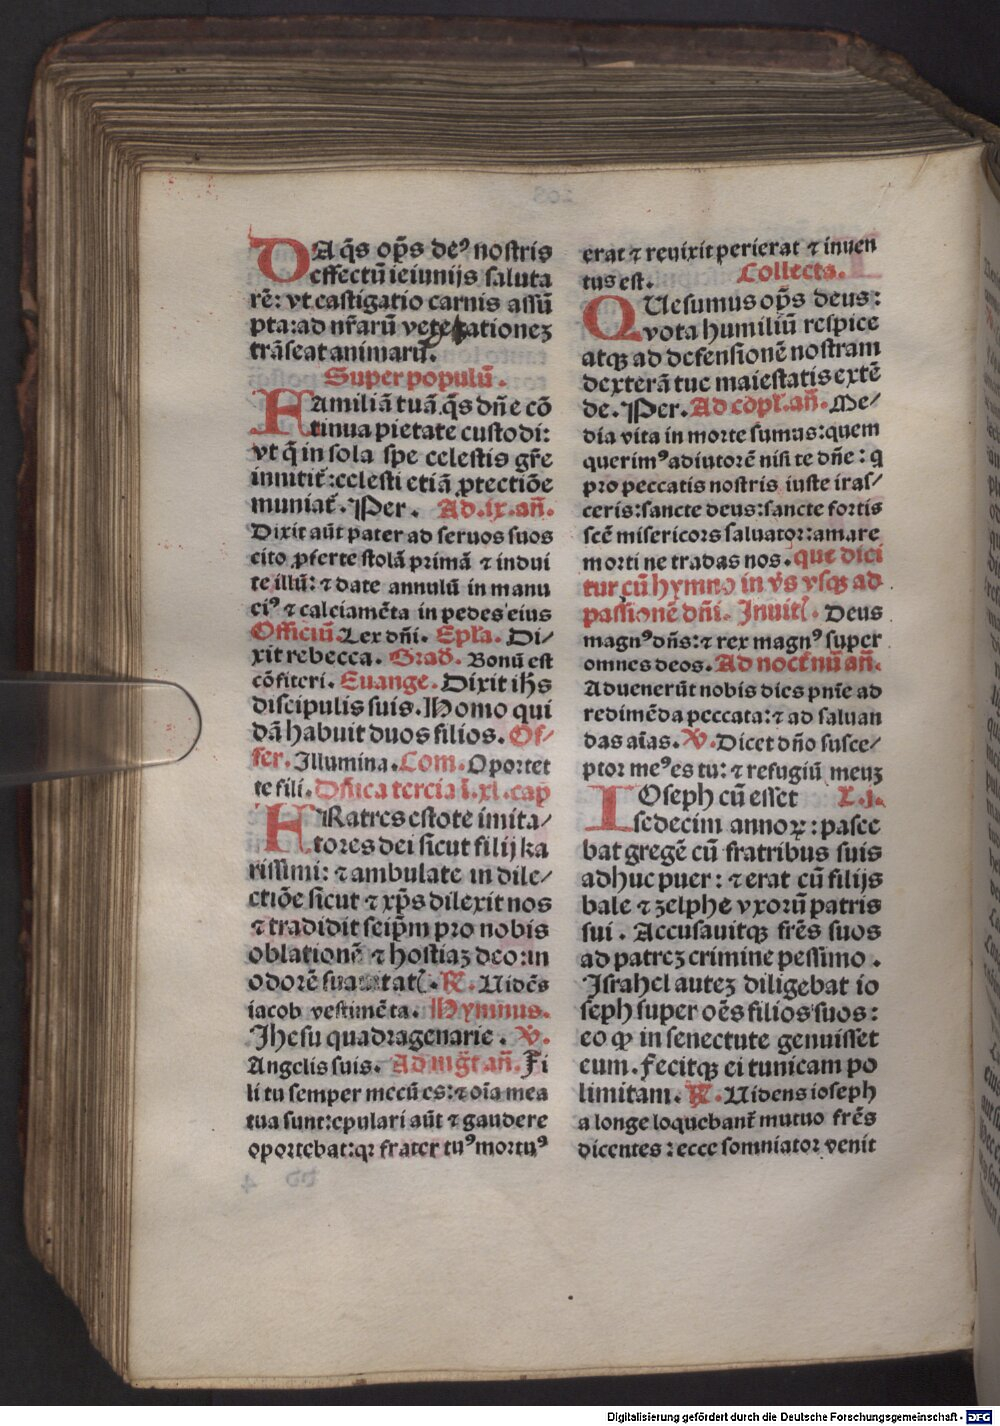 DA q̄s op̄s deꝰ nostris
effectū ieiunijs saluta
rē: vt castigatio carnis assū
pta: ad nr̄arū vegetationeꝫ
trāseat animarū.
Super populū.
FAmiliā tuā q̄s dn̄e cō
tinua pietate custodi:
vt q̄ in sola spe celestis gr̄e
innitit̄: celesti etiā ꝓtectiōe
muniat̄. Per. Ad .ix. an̄.
Dixit aūt pater ad seruos suos
cito ꝓferte stolā primā ⁊ indui
te illū: ⁊ date annulū in manu
eiꝰ ⁊ calciamēta in pedes eius
Officiū Lex dn̄i. Epl̄a. Di/
xit rebecca. Grad̄. Bonū est
cōfiteri. Euange. Dixit ih̄s
discipulis suis. Homo qui
dā habuit duos filios. Of/
fer. Illumina. Com. Oportet
te fili. Dn̄ica tercia ī .xl. cap̄
FRatres estote imita/
tores dei sicut filij ka
rissimi: ⁊ ambulate in dile/
ctiōe sicut ⁊ xp̄s dilexit nos
⁊ tradidit seip̄m pro nobis
oblationē ⁊ hostiaꝫ deo: in
odorē suauitatꝭ. ℟. Uidēs
iacob vestimēta. Hymnus.
Jhesu quadragenarie. ℣.
Angelis suis. Ad mgt̄ an̄. Fi
li tu semper mecū es: ⁊ oīa mea
tua sunt: epulari aūt ⁊ gaudere
oportebat: qꝛ frater tuꝰ mortuꝰ
erat ⁊ reuixit perierat ⁊ inuen
tus est. Collecta.
QUesumus op̄s deus:
vota humiliū respice
atqꝫ ad defensionē nostram
dexterā tue maiestatis extē
de. Per. Ad cōpl̄. an̄. Me/
dia vita in morte sumus: quem
querimꝰ adiutorē nisi te dn̄e: q
pro peccatis nostris iuste iras/
ceris: sancte deus: sancte fortis
scē misericors saluator: amare
morti ne tradas nos. que dici
tur cū hymno in v̄s vsqꝫ ad
passionē dn̄i. Inuitꝭ. Deus
magnꝰ dn̄s: ⁊ rex magnꝰ super
omnes deos. Ad noct̄nū an̄.
Aduenerūt nobis dies pnīe ad
redimēda peccata: ⁊ ad saluan
das aīas. ℣. Dicet dn̄o susce/
ptor meꝰ es tu: ⁊ refugiū meuꝫ
IOseph cū esset L.j.
sedecim annoꝝ: pasce
bat gregē cū fratribus suis
adhuc puer: ⁊ erat cū filijs
bale ⁊ zelphe vxorū patris
sui. Accusauitqꝫ frēs suos
ad patreꝫ crimine pessimo.
Israhel auteꝫ diligebat io
seph super oēs filios suos:
eo ꝙ in senectute genuisset
eum. fecitqꝫ ei tunicam po
limitam. ℟. Uidens ioseph
a longe loquebant̄ mutuo frēs
dicentes: ecce somniator venit
Digitalisierung gefördert durch die Deutsche Forschungsgemeinschaft - DFG